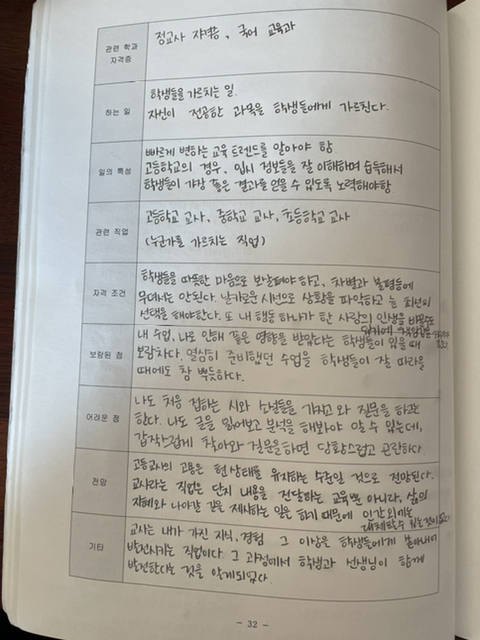 관련 학과
자격증
정교사 자격증, 국어 교육과
하는 일
학생들을 가르치는 일.
자신이 전공한 과목을 학생들에게 가르친다.
일의 특성
빠르게 변하는 교육 트렌드를 알아야 함.
고등학교의 경우, 입시 정보들을 잘 이해하며 습득해서
학생들이 가장 좋은 결과를 얻을 수 있도록 노력해야함
관련 직업
고등학교 교사, 중학교 교사, 초등학교 교사
(누군가를 가르치는 직업)
자격 조건
학생들을 따뜻한 마음으로 보살펴야 하고, 차별과 불평등에
무뎌서는 안된다. 날카로운 시선으로 상황을 파악하고 늘 최선의
선택을 해야한다. 또 내 행동 하나가 한 사람의 인생을 바꿀수도
있기에 책임감을
보람된 점
내 수업, 나로 인해 좋은 영향을 받았다는 학생들이 있을 때
보람차다. 열심히 준비했던 수업을 학생들이 잘 따라올
때에도 참 뿌듯하다.
어려운 점
나도 처음 접하는 시와 소설들을 가지고 와 질문을 하고는
한다. 나도 글을 읽어보고 분석을 해봐야 알 수 있는데,
갑작스럽게 찾아와 질문을 하면 당황스럽고 곤란하다.
전망
고등교사의 고용은 현 상태를 유지하는 수준일 것으로 전망된다.
교사라는 직업은 단지 내용을 전달하는 교육뿐 아니라, 삶의
지혜와 나아갈 길을 제시하는 일을 하기 때문에 인간외에는
대체할수 있는것이 없다
기타
교사는 내가 가진 지식, 경험 그 이상을 학생들에게 쏟아내어
발전시키는 직업이다. 그 과정에서 학생과 선생님이 함께
발전한다는 것을 알게되었다.
- 32 -